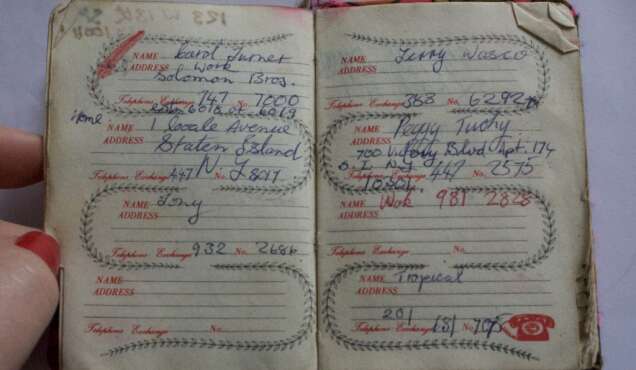 123 W 13th
NAME Carol Turner
ADDRESS Work
Solomon Bros.
Telephone Exchange 747 No. 7000
6018 or 6019
Home
NAME 1 Locale Avenue
ADDRESS Staten Island
N.Y.
Telephone Exchange 447 No. 8217
NAME Tony
ADDRESS
Telephone Exchange 932 No. 2686
NAME
ADDRESS
Telephone Exchange No.
NAME Terry Wasco
ADDRESS
Telephone Exchange 388 No. 6292
NAME Peggy Tuohy
ADDRESS
700 Victory Blvd Apt. 174
Telephone Exchange 447 No. 2575
10304
NAME Wok 981 2828
ADDRESS
Telephone Exchange No.
NAME Tropical
ADDRESS
201
Telephone Exchange No.